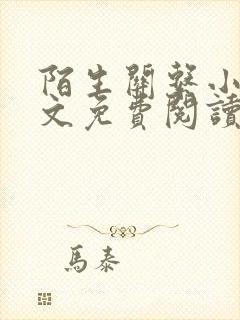 陌生關系小
文免費閱讀
馬泰